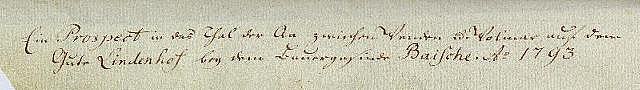 Ein Prospect in das Thal der Aa zwischen Wenden u. Wolmar auf dem
Gute Lindenhof bey dem Bauergesinde Baische. Aº 1793